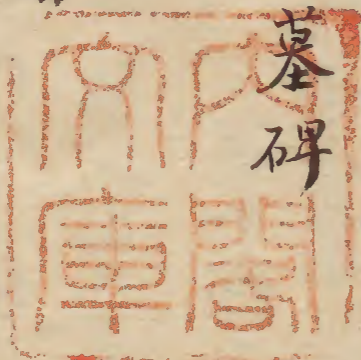 墓碑
内閣
文庫